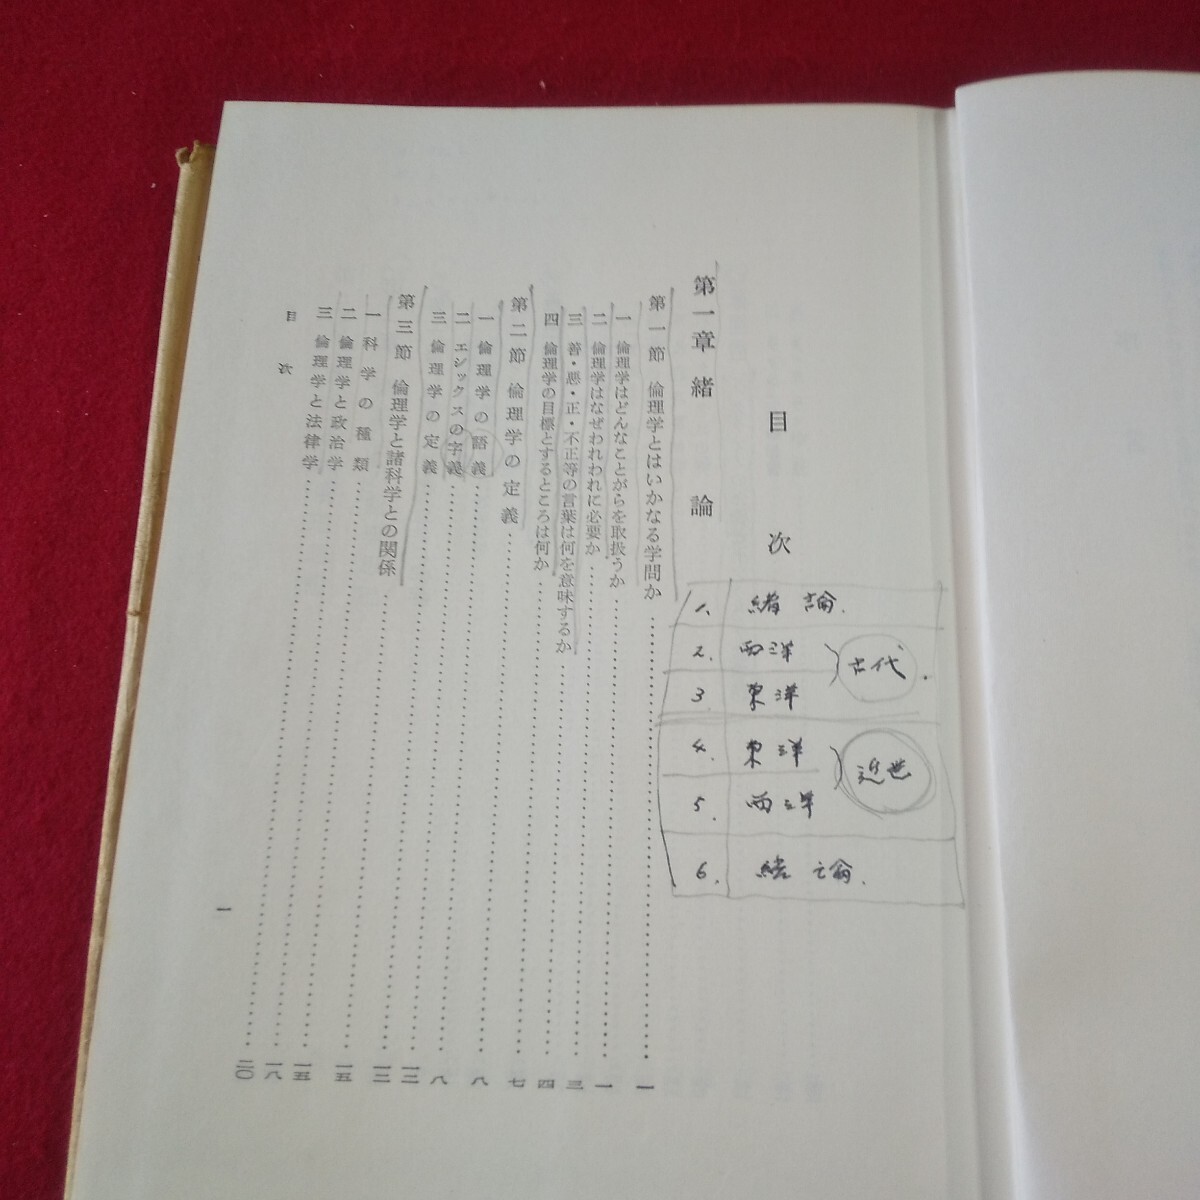 目次
第一章 緒論
第一節 倫理学とはいかなる学問か……一
一 倫理学はどんなことがらを取扱うか……一
二 倫理学はなぜわれわれに必要か……三
三 善・悪・正・不正等の言葉は何を意味するか……四
四 倫理学の目標とするところは何か……七
第二節 倫理学の定義……八
一 倫理学の語義……八
二 エシックスの字義……一二
三 倫理学の定義……一三
第三節 倫理学と諸科学との関係……一五
一 科学の種類……一五
二 倫理学と政治学……一八
三 倫理学と法律学……二〇
目次
一
1. 緒論.
2. 西洋
3. 東洋
古代.
4. 東洋
5. 西洋
近世
6. 結論.